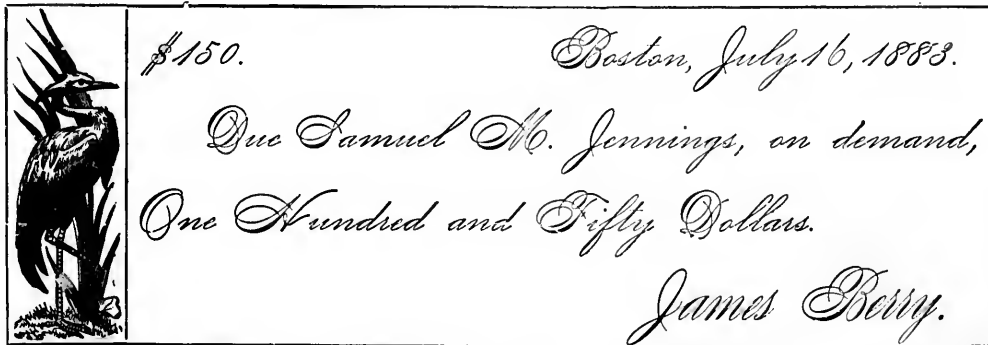 $150. Boston, July 16, 1883.
Due Samuel M. Jennings, on demand,
One Hundred and Fifty Dollars.
James Berry.